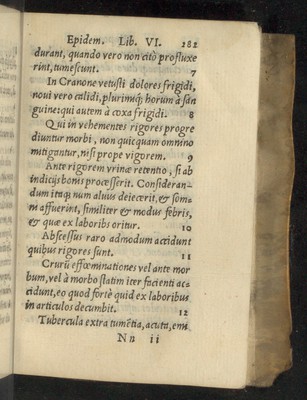 Epidem. Lib. VI. 282
durant, quando vero non citò profluxe
rint, tumescunt. 7
In Cranone vetusti dolores frigidi,
noui vero calidi, plurimiq; horum à sãn
guine: qui autem à coxa frigidi. 8
Qui in vehementes rigores progre
diuntur morbi, non quicquam omnino
mitigantur, nisi prope vigorem. 9
Ante rigorem vrinæ retentio, si ab
indicijs bonis processerit. Consideran-
dum itaq; num aluus deiecerit, & som-
ni affuerint, similiter & modus febris,
& quæ ex laboribs oritur. 10
Abscessus raro admodum accidunt
quibus rigores sunt. 11
Crurũ effœminationes vel ante mor
bum, vel à morbo statim iter facienti ac-
cidunt, eo quod fortè quid ex laboribus
in articulos decumbit. 12
Tubercula extra tumẽtia, acuta, emi
Nn ii